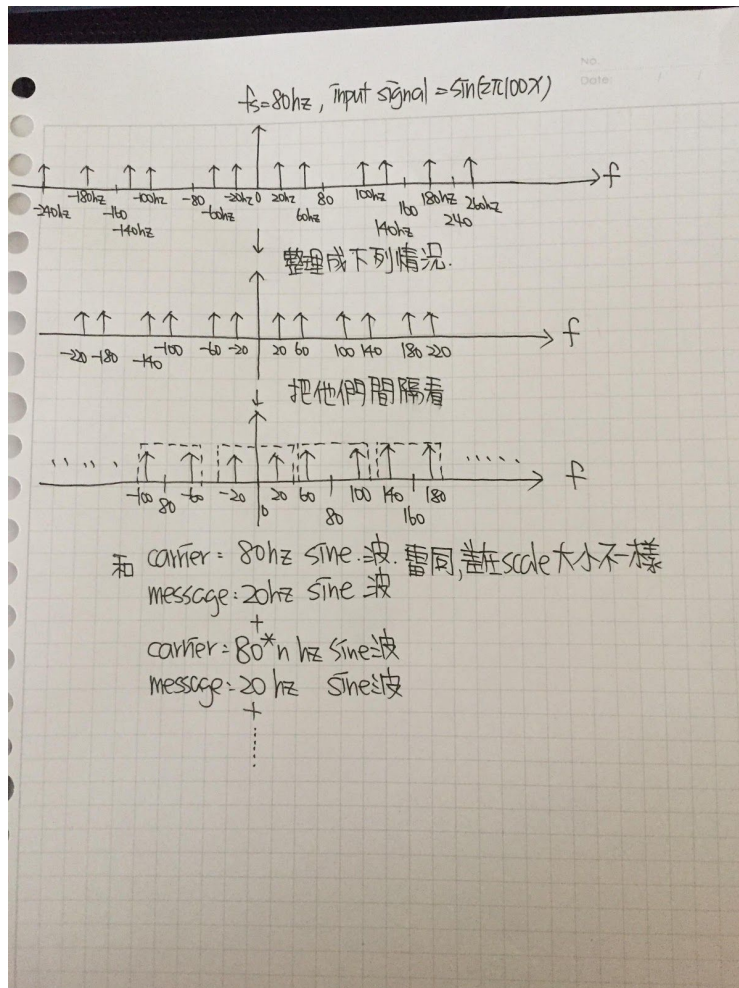 No.
Date / /
fs=80hz, input signal = sin(2π100x)
-240hz -180hz -160 -140hz -100hz -80 -60hz -20hz 0 20hz 60hz 80 100hz 140hz 160 180hz 240 260hz f
整理成下列情況.
-220 -180 -140 -100 -60 -20 20 60 100 140 180 220 f
把他們間隔看
..... -100 80 -60 -20 0 20 60 80 100 140 160 180 ..... f
和 carrier = 80hz sine.波. 雷同,差在scale大小不一樣
message:20hz sine 波
+
carrier=80*n hz sine波
message:20 hz sine波
+
......